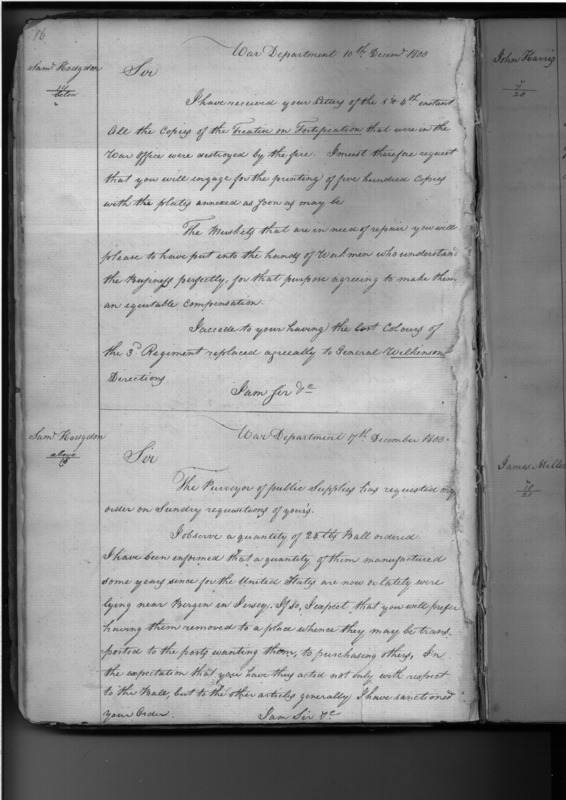 76
War Department 10th Decemr 1800
Saml Hodgdon
Sir
I have received your Letters of the & 4th instant
All the Copies of the Treatise on Fortification that were in the
War Office were destroyed by the fire. I must therefore request
that you will engage for the printing of five hundred Copies
with the plates annexed as soon as may be
The Muskets that are in need of repair you will
please to have put into the hands of Workmen who understand
the Business perfectly, for that purpose agreeing to make them
an equitable compensation.
I accede to your having the lost Colours of
the 3d Regiment replaced agreeably to General Wilkinson
Directions
I am Sir &c
War Department 17th December 1800.
Saml Hodgdon
above
Sir
The Purveyor of public Supplies has requested my
order on Sundry requisitions of yours.
I observe a quantity of 24 lbs Ball ordered.
I have been informed that a quantity of them manufactured
some years since for the United States are now or lately were
lying near Bergen in Jersey. If so, I expect that you will prefer
having them removed to a place whence they may be trans-
ported to the ports wanting them, to purchasing others. In
the expectation that you have thus acted not only with respect
to the Balls, but to the other articles generally I have sanctioned
your Order.
I am Sir &c
John Harris
20
James Miller